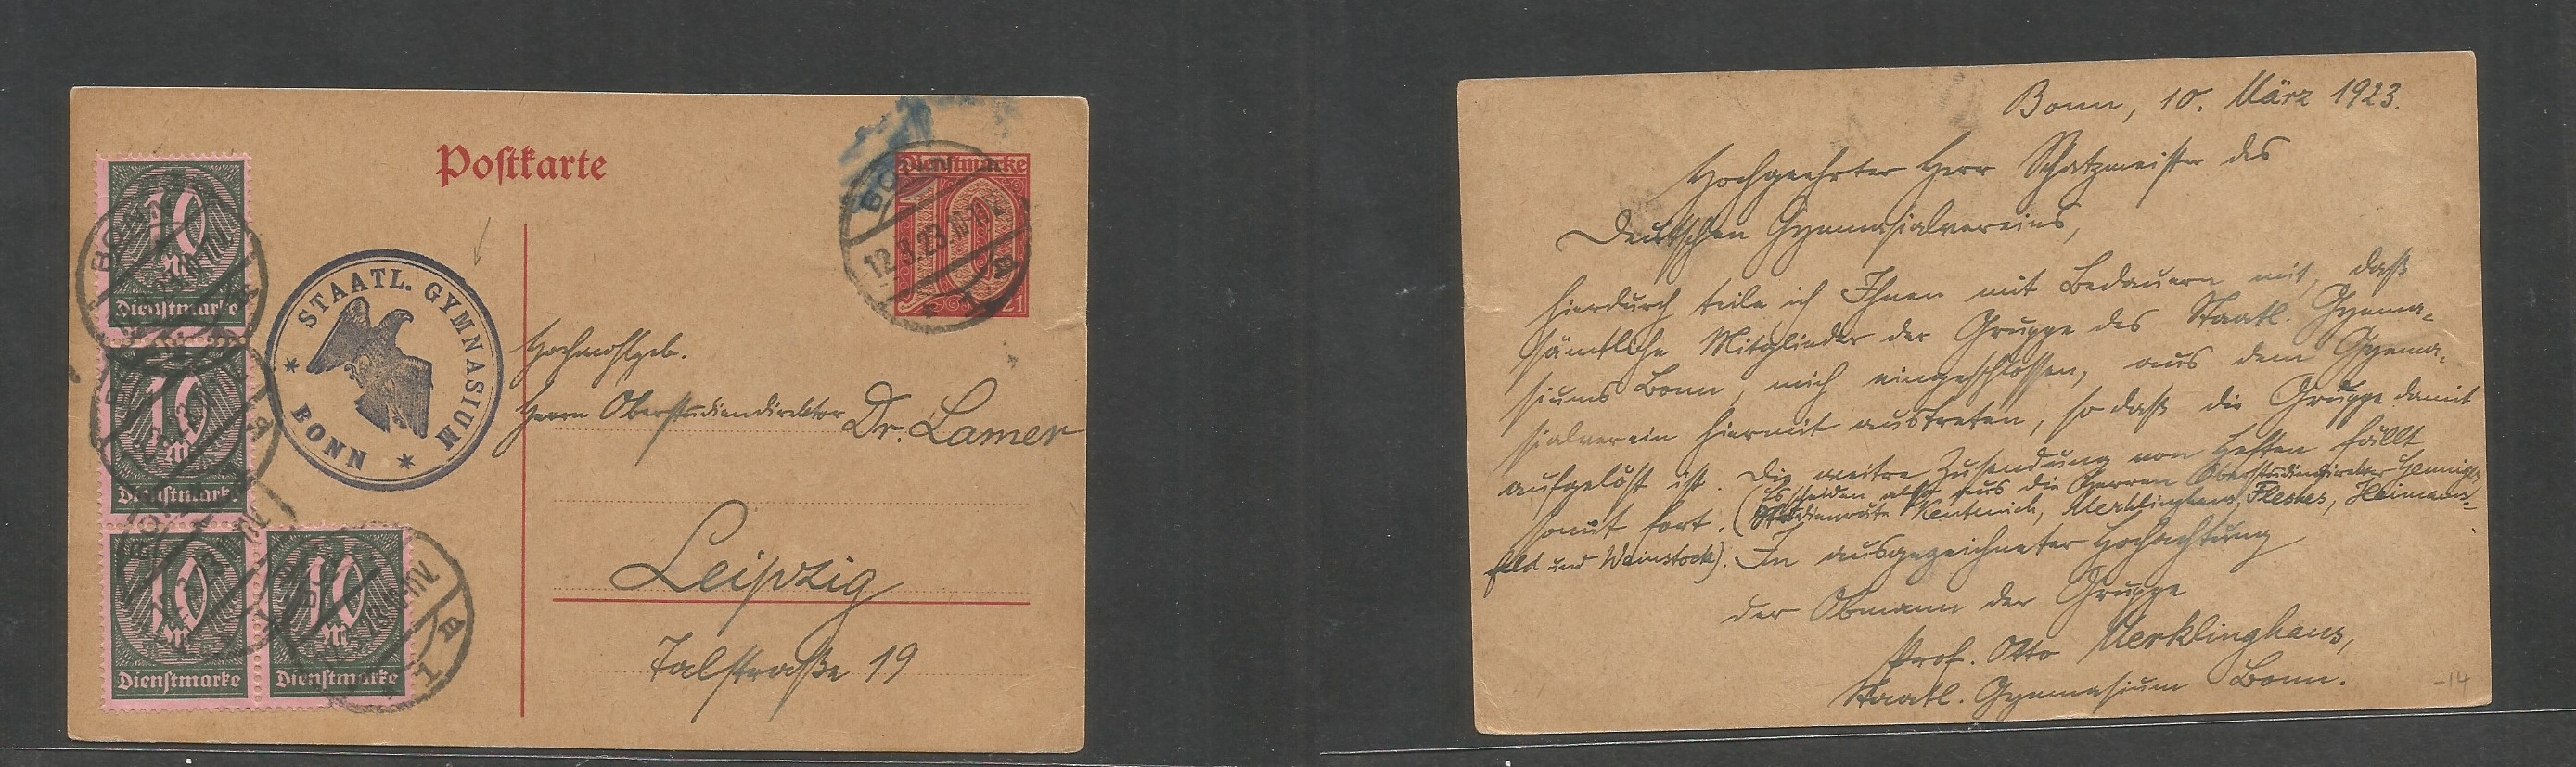 Postkarte
Dienstmarke
10
21
BONN
12.3.23
10
M
Dienstmarke
10
M
Dienstmarke
10
M
Dienstmarke
10
M
Dienstmarke
STAATL. GYMNASIUM
* BONN *
Hochwohlgeb.
Herrn Oberstudiendirektor Dr. Lamer
Leipzig
Talstraße 19
Bonn, 10. März 1923.
Hochgeehrter Herr Schatzmeister des
Deutschen Gymnasialvereins,
hierdurch teile ich Ihnen mit Bedauern mit, daß
sämtliche Mitglieder der Gruppe des Staatl. Gymna-
siums Bonn, mich eingeschlossen, aus dem Gymna-
sialverein hiermit austreten, so daß die Gruppe damit
aufgelöst ist. Die weitre Zusendung von Heften fällt
somit fort. (Es scheiden also aus die Herren Oberstudiendirektor
Studienräte Kentenich, Merklinghaus,
feld und Weinstock). In ausgezeichneter Hochachtung
der Obmann der Gruppe
Prof. Otto Merklinghaus,
Staatl. Gymnasium Bonn.
-14